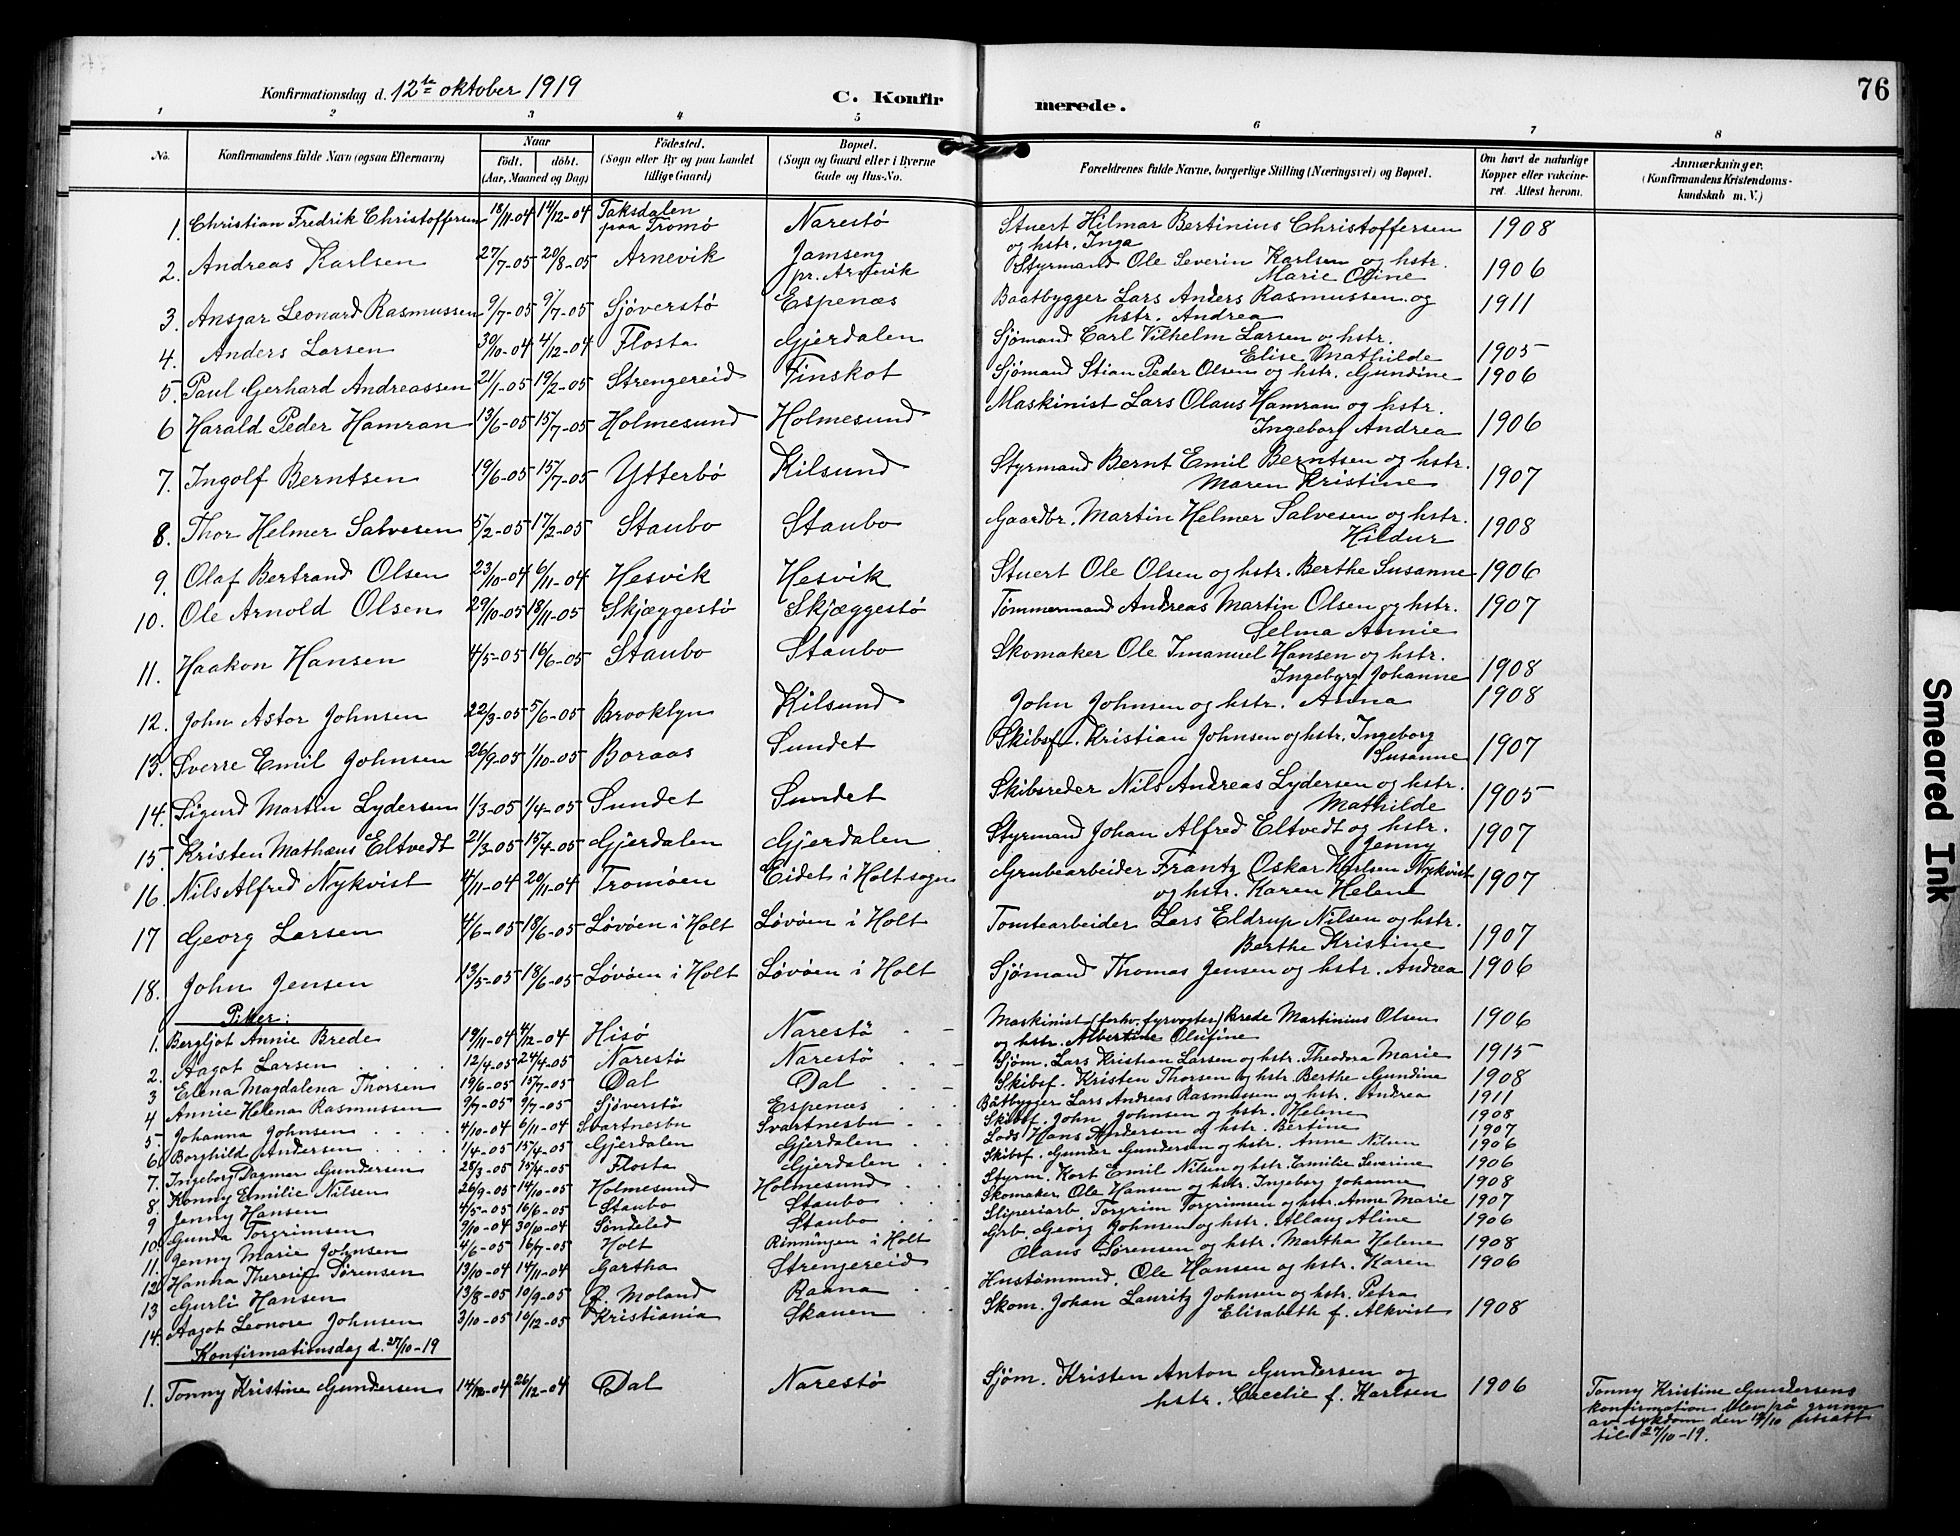 Konfirmationsdag d. 12te oktober 1919
C. Konfirmerede.
76
1 2 3 4 5 6 7 8
No. Konfirmandens fulde Navn (ogsaa Efternavn) Naar født. døbt. (Aar, Maaned og Dag) Fødested. (Sogn eller By og paa Landet tillige Gaard) Bopæl. (Sogn og Gaard eller i Byerne Gade og Hus-No. Forældrenes fulde Navne, borgerlige Stilling (Næringsvei) og Bopæl. Om havt de naturlige Kopper eller vakcineret. Attest herom. Anmærkninger. (Konfirmandens Kristendomskundskab m. V.)
1. Christian Fredrik Christoffersen 18/11-04 14/12-04 Taksdalen paa Tromø Narestø Stuert Hilmar Bertinius Christoffersen og hstr. Inga 1908
2. Andreas Karlsen 27/7-05 20/8-05 Arnevik Jamseng pr. Arnevik Styrmand Ole Severin Karlsen og hstr. Marie Oline 1906
3. Ansgar Leonard Rasmussen 9/7-05 9/7-05 Sjöverstø Espenæs Baatbygger Lars Anders Rasmussen og hstr. Andrea 1911
4. Anders Larsen 30/10-04 4/12-04 Flosta Gjerdalen Sjømand Carl Vilhelm Larsen og hstr. Elise Mathilde 1905
5. Paul Gerhard Andreassen 21/1-05 19/2-05 Strengereid Finskot Sjömand Stian Peder Olsen og hstr. Gundine 1906
6 Harald Peder Hamran 13/6-05 15/7-05 Holmesund Holmesund Maskinist Lars Olaus Hamran og hstr. Ingeborg Andrea 1906
7. Ingolf Berntsen 19/6-05 15/7-05 Ytterbø Kilsund Styrmand Bernt Emil Berntsen og hstr. Maren Kristine 1907
8. Thor Helmer Salvesen 5/2-05 17/2-05 Staubo Staubo Gaardbr. Martin Helmer Salvesen og hstr. Hildur 1908
9. Olaf Bertrand Olsen 23/10-04 6/11-04 Hesvik Hesvik Stuert Ole Olsen og hstr. Berthe Susanne 1906
10. Ole Arnold Olsen 29/10-05 18/11-05 Skjæggestø Skjæggestø Tømmermand Andreas Martin Olsen og hstr. Selma Annie 1907
11. Haakon Hansen 4/5-05 16/6-05 Staubo Staubo Skomaker Ole Imanuel Hansen og hstr. Ingeborg Johanne 1908
12. John Astor Johnsen 22/3-05 5/6-05 Brooklyn Kilsund John Johnsen og hstr. Anna 1908
13. Sverre Emil Johnsen 26/9-05 1/10-05 Boraas Sundet Skibsf. Kristian Johnsen og hstr. Ingeborg Susanne 1907
14. Sigurd Martin Lydersen 1/3-05 1/4-05 Sundet Sundet Skibsreder Nils Andreas Lydersen og hstr. Mathilde 1905
15. Kristen Mathæus Eltvedt 21/3-05 15/4-05 Gjerdalen Gjerdalen Styrmand Johan Alfred Eltvedt og hstr. Jenny 1907
16. Nils Alfred Nykvist 4/11-04 20/11-04 Tromøen Eidet i Holt sogn Grubearbeider Frantz Oskar Karlsen Nykvist og hstr. Karen Helene 1907
17 Georg Larsen 4/6-05 18/6-05 Løvøen i Holt Løvøen i Holt Tomtearbeider Lars Eldrup Nilsen og hstr. Berthe Kristine 1907
18. John Jensen 13/5-05 18/6-05 Løvøen i Holt Løvøen i Holt Sjømand Thomas Jensen og hstr. Andrea 1906
Piker:
1. Bergljot Annie Brede 19/11-04 4/12-04 Hisø Narestö Maskinist (forhv. fyrvogter) Brede Martinius Olsen og hstr. Albertine Olufine 1906
2. Aagot Larsen 12/4-05 24/4-05 Narestö Narestö Sjøm. Lars Kristian Larsen og hstr. Theodora Marie 1915
3 Elena Magdalena Thorsen 19/6-05 15/7-05 Dal Dal Skibsf. Kristen Thorsen og hstr. Berthe Gundine 1908
4 Annie Helena Rasmussen 9/7-05 9/7-05 Sjöverstö Espenæs Båtbygger Lars Andreas Rasmussen og hstr. Andrea 1911
5. Johanna Johnsen 4/10-04 6/11-04 Svartnesbu Svartnesbu Skibsf. John Johnsen og hstr. Helene 1908
6. Borghild Andersen 1/4-05 15/4-05 Gjerdalen Gjerdalen Lods Hans Andersen og hstr. Bertine 1907
7. Ingeborg Dagmar Gundersen 28/3-05 15/4-05 Flosta Gjerdalen Skibsf. Gunder Gundersen og hstr. Anne Nilsen 1906
8. Konny Emilie Nilsen 26/9-05 14/10-05 Holmesund Holmesund Styrm. Kort Emil Nilsen og hstr. Emilie Severine 1906
9 Jenny Hansen 4/5-05 16/6-05 Staubo Staubo Skomaker Ole Hansen og hstr. Ingeborg Johanne 1908
10. Gunda Torgrimsen 9/10-04 30/10-04 Søndeled Staubo Sliperiarb. Torgrim Torgrimsen og hstr. Anne Marie 1907
11. Jenny Marie Johnsen 4/6-05 16/7-05 Holt Rinningen i Holt Grb. Georg Johnsen og hstr. Allaug Aline 1906
12. Hanna Theresie Sørensen 13/10-04 14/11-04 Gartha Strengereid Olaus Sørensen og hstr. Martha Helene 1908
13 Gurli Hansen 13/8-05 10/9-05 Ø. Moland Raana Hustømmmd. Ole Hansen og hstr. Karen 1906
14. Aagot Leonore Johnsen 3/10-05 16/12-05 Kristiania Skauen Skom. Johan Lauritz Johnsen og hstr. Petra Elisabeth f. Alkvist 1908
Konfirmationsdag d. 27/10-19
1. Tonny Kristine Gundersen 14/10-04 26/12-04 Dal Narestø Sjøm. Kristen Anton Gundersen og hstr. Cecelie f. Karlsen 1906
Tonny Kristine Gundersens
konfirmation blev på grunn
av sykdom den 12/10 utsatt
til 27/10-19.
Smeared Ink